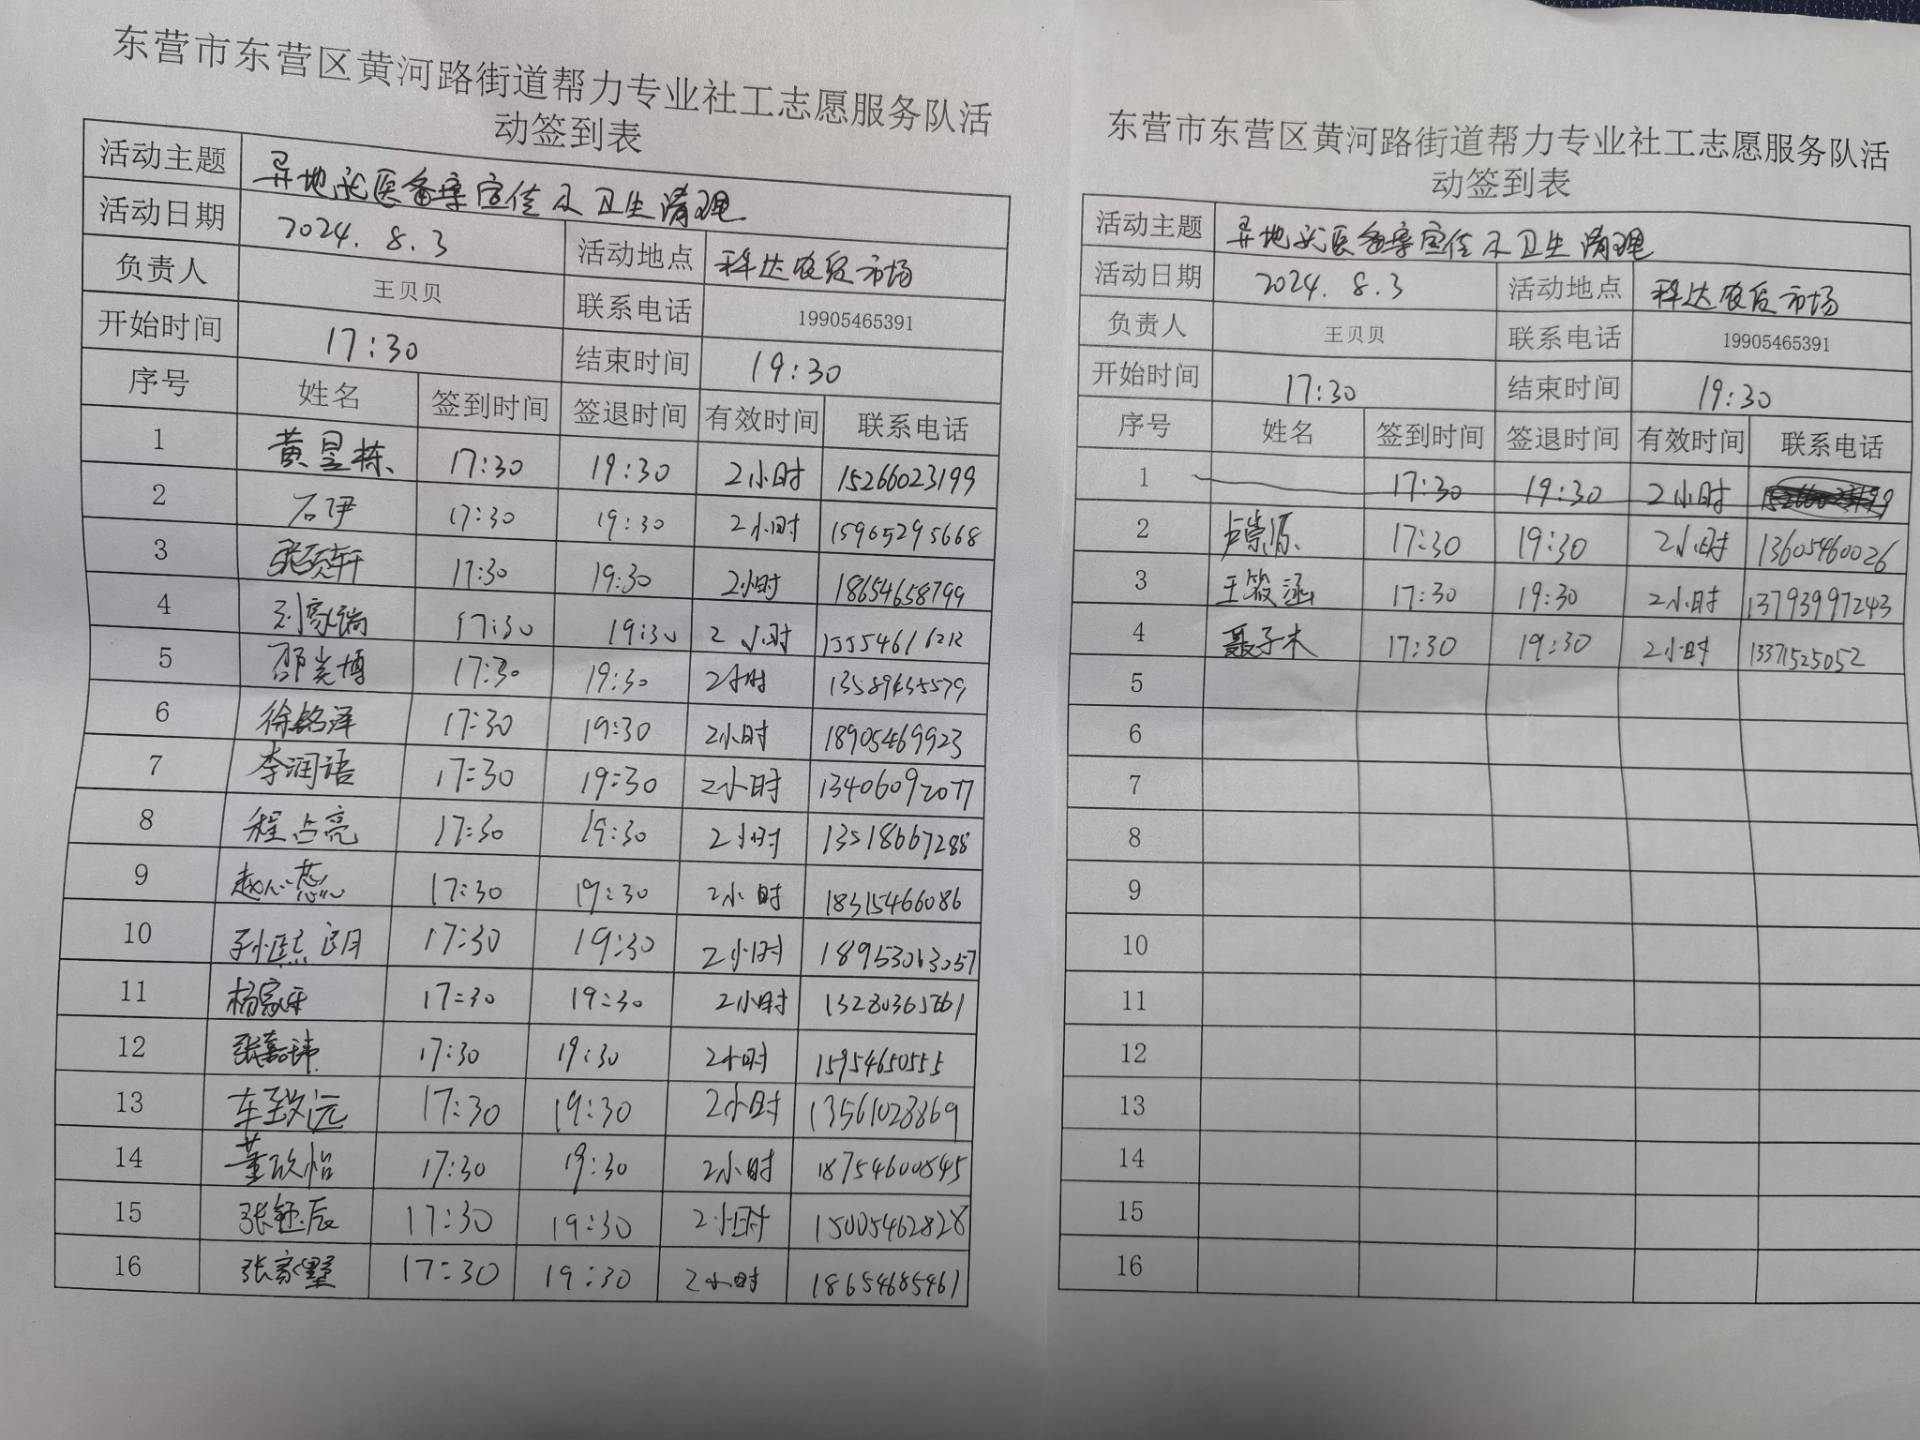 东营市东营区黄河路街道帮力专业社工志愿服务队活
动签到表
活动主题 异地就医备案宣传及卫生清理
活动日期 2024.8.3 活动地点 科达农贸市场
负责人 王贝贝 联系电话 19905465391
开始时间 17:30 结束时间 19:30
序号 姓名 签到时间 签退时间 有效时间 联系电话
1 黄昱栋 17:30 19:30 2小时 15266023199
2 石伊 17:30 19:30 2小时 15965295668
3 17:30 19:30 2小时 18654658799
4 刘家瑞 17:30 19:30 2小时
5 邵光博 17:30 19:30 2小时
6 徐铭泽 17:30 19:30 2小时 18905469923
7 李润语 17:30 19:30 2小时 13406092077
8 程占亮 17:30 19:30 2小时 13518667288
9 17:30 19:30 2小时 18315466086
10 17:30 19:30 2小时 18953063057
11 17:30 19:30 2小时
12 张嘉玮 17:30 19:30 2小时 15954650555
13 车致远 17:30 19:30 2小时 13561028869
14 董欣怡 17:30 19:30 2小时 18754600545
15 张钰辰 17:30 19:30 2小时 15005462828
16 张家墅 17:30 19:30 2小时 18654685461
东营市东营区黄河路街道帮力专业社工志愿服务队活
动签到表
活动主题 异地就医备案宣传及卫生清理
活动日期 2024.8.3 活动地点 科达农贸市场
负责人 王贝贝 联系电话 19905465391
开始时间 17:30 结束时间 19:30
序号 姓名 签到时间 签退时间 有效时间 联系电话
1 17:30 19:30 2小时
2 卢崇源 17:30 19:30 2小时 13605460026
3 王筱涵 17:30 19:30 2小时 13793997243
4 聂子木 17:30 19:30 2小时 13371525052
5
6
7
8
9
10
11
12
13
14
15
16